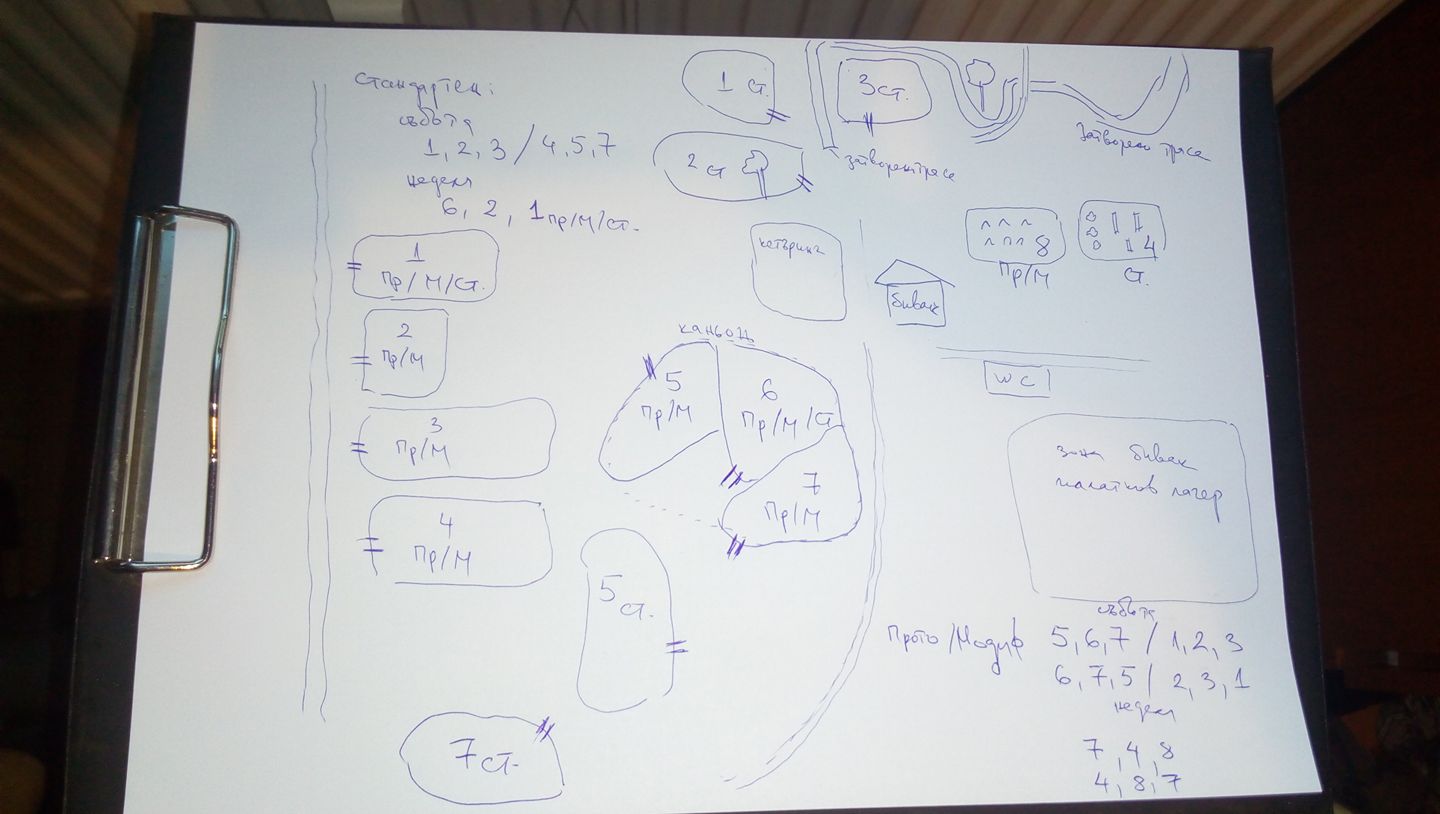 Стандартен:
събота
1, 2, 3 / 4, 5, 7
неделя
6, 2, 1 пр/м/ст.
1 ст.
2 ст
3 ст.
затворен трасе
Затворено трасе
1
Пр/М/Ст.
2
Пр/М
3
Пр/М
4
Пр/М
кетъринг
бивак
8
Пр/М
4
Ст.
WC
каньон
5
Пр/М
6
Пр/М/Ст
7
Пр/М
зона бивак
палатков лагер
5 ст.
7 ст.
събота
Прото/Модиф 5, 6, 7 / 1, 2, 3
6, 7, 5 / 2, 3, 1
неделя
7, 4, 8
4, 8, 7